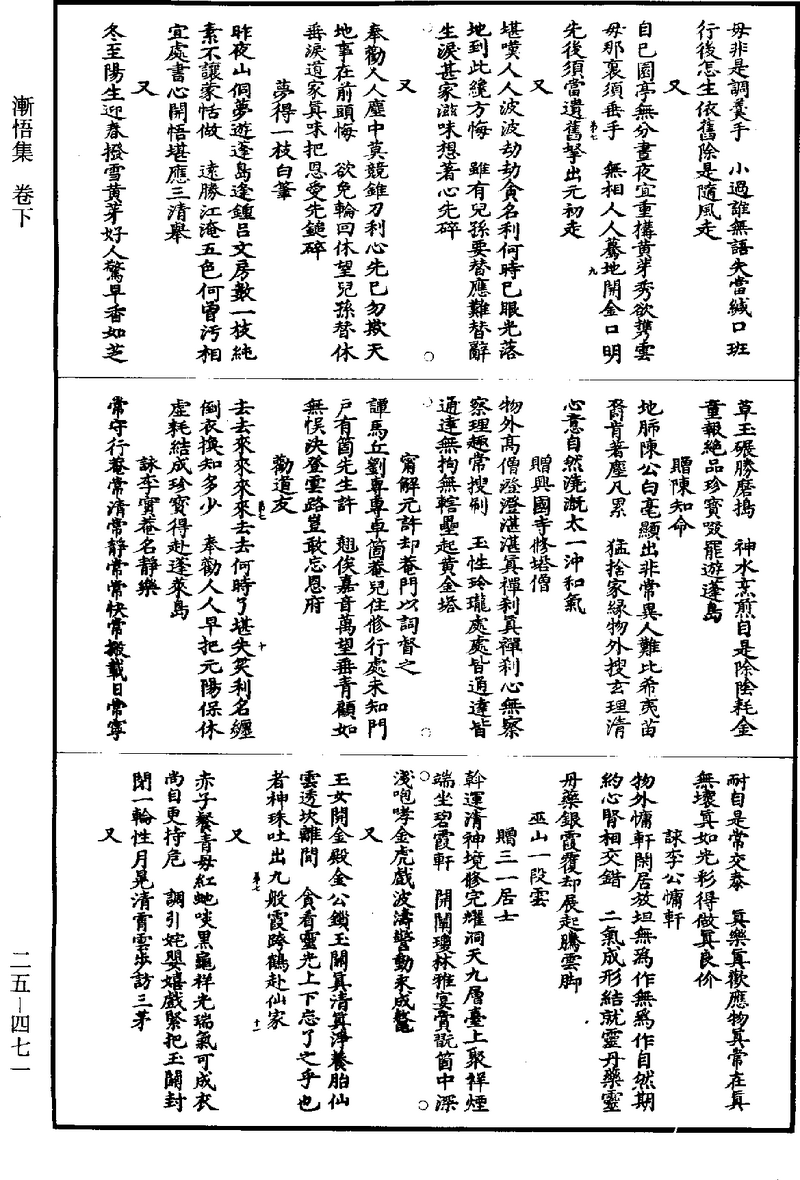 毋非是調羹手　小過誰無語失當緘口班
行後怎生依舊除是隨風走
又
自己園亭無分晝夜宜重搆黄芽秀欲携雲
毋那裏須垂手　無相人人驀地開金口明
先後須當遺舊拏出元初走
又
堪嘆人人波波劫劫貪名利何時已眼光落
地到此纔方悔　雖有兒孫要替應難替辭
生淚甚家滋味想著心先碎
又
奉勸人人塵中莫競錐刀利心先已勿欺天
地事在前頭悔　欲免輪回休望兒孫替休
垂淚道家真味把恩愛先鎚碎
夢得一枝白筆
昨夜山侗夢遊蓬島逢鍾呂文房數一枝純
素不讓蒙恬做　遠勝江淹五色何曾汚相
宜處書心開悟堪應三清舉
又
冬至陽生迎春撥雪黄芽好人驚早香如芝
草玉碾勝磨搗　神水烹煎自是除陰耗金
童報絶品珍寶啜罷遊蓬島
贈陳知命
地肺陳公白毫顯出非常異人難比希夷苗
裔肯著塵凡累　猛捨家緣物外搜玄理清
心意自然洗漑太一沖和氣
贈興國寺修塔僧
物外高僧澄澄湛湛真禪刹真禪刹心無察
察理趣常搜刷　玉性玲瓏處處皆通達皆
通達無拘無轄壘起黄金塔
甯解元許却菴門以詞督之
譚馬丘劉專專卓箇菴兒住修行處未知門
戶有箇先生許　翹俟嘉音萬望垂青顧如
無悞決登雲路豈敢忘恩府
勸道友
去去來來來來去去何時了堪失笑利名纏
倒衣換知多少　奉勸人人早把元陽保休
虛耗結成珍寶得赴蓬萊島
詠李實菴名靜樂
常守行菴常清常靜常常快常搬載日常寧
耐自是常交泰　真樂真歡應物真常在真
無壞真如光彩得做真良价
詠李公慵軒
物外慵軒閑居放坦無爲作無爲作自然期
約心腎相交錯　二氣成形結就靈丹藥靈
丹藥銀霞覆却展起騰雲脚
巫山一段雲
贈三一居士
斡運清神境修完耀洞天九層臺上聚祥煙
端坐碧霞軒　開闡瓊林雅宴賞翫箇中深
淺咆哮金虎戲波濤驚動未成鼇
又
玉女開金殿金公鎖玉關真清真淨養胎仙
雲透坎離間　貪看靈光上下忘了之乎也
者神珠吐出九般霞跨鶴赴仙家
又
赤子餐青母紅虵啖黒龜祥光瑞氣可成衣
尚自更持危　調引姹嬰嬉戲緊把玉關封
閉一輪性月晃清霄雲步訪三茅
又
漸悟集　卷下
二五—四七一